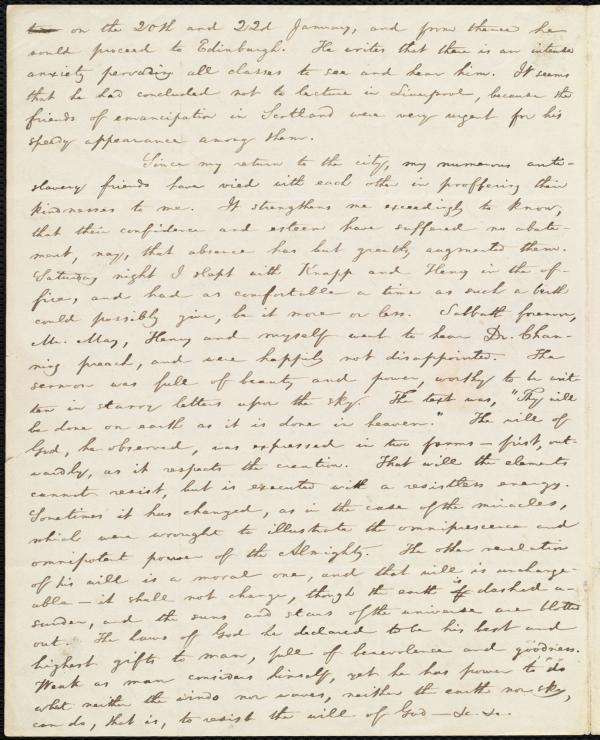 on the 20th and 22d January, and from thence he
would proceed to Edinburgh. He writes that there is an intense
anxiety pervading all classes to see and hear him. It seems
that he had concluded not to lecture in Liverpool, because the
friends of emancipation in Scotland were very urgent for his
speedy appearance among them.
Since my return to the city, my numerous anti-
slavery friends have vied with each other in proffering their
kindnesses to me. It strengthens me exceedingly to know,
that their confidence and esteem have suffered no abate-
ment, nay, that absence has but greatly augmented them.
Saturday night I slept with Knapp and Henry in the of-
fice, and had as comfortable a time as such a birth
could possibly give, be it more or less. Sabbath forenoon,
Mr. May, Henry and myself went to hear Dr. Chan-
ning preach, and were happily not disappointed. The
sermon was full of beauty and power, worthy to be writ-
ten in starry letters upon the sky. The text was, "Thy will
be done on earth as it is done in heaven." The will of
God, he observed, was expressed in two forms — first, out-
wardly, as it respects the creation. That will the elements
cannot resist, but is executed with a resistless energy.
Sometimes it has changed, as in the case of the miracles,
which were wrought to illustrate the omnipresence and
omnipotent power of the Almighty. The other revelation
of his will is a moral one, and that will is unchange-
able — it shall not change, though the earth is dashed a-
sunder, and the suns and stars of the universe are blotted
out. The laws of God he declared to be his best and
highest gifts to man, full of benevolence and goodness.
Weak as man considers himself, yet he has power to do
what neither the winds nor waves, neither the earth nor sky,
can do, that is, to resist the will of God — &c. &c.